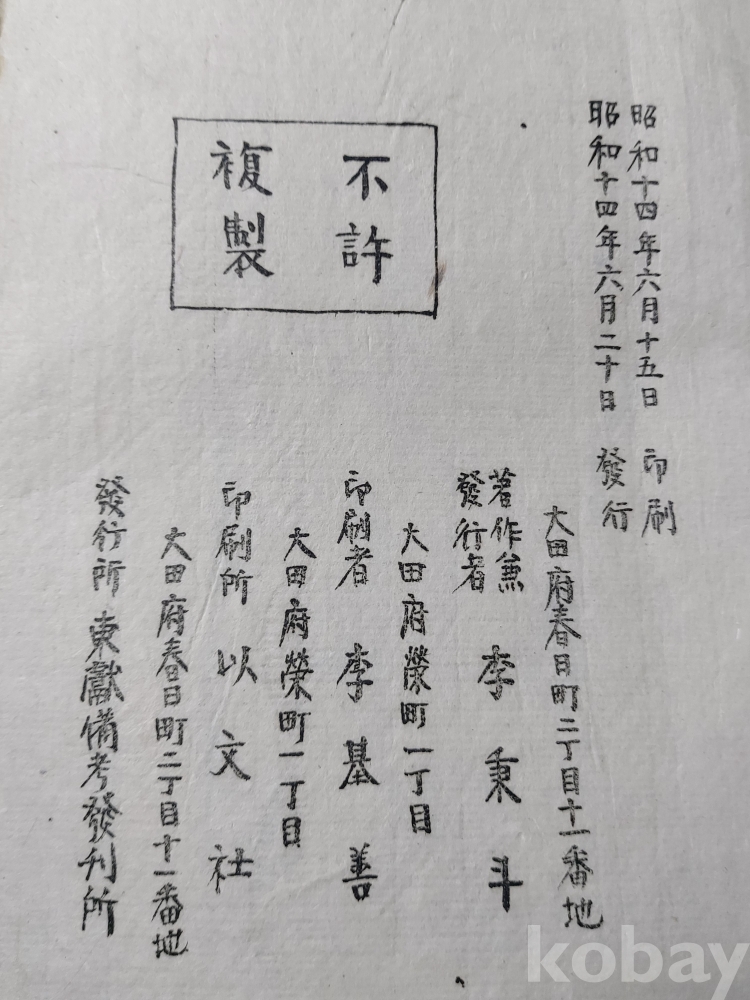 昭和十四年六月十五日 印刷
昭和十四年六月二十日 發行
不許
複製
大田府春日町二丁目十一番地
著作兼
發行者 李秉斗
大田府榮町一丁目
印刷者 李基善
大田府榮町一丁目
印刷所 以文社
大田府春日町二丁目十一番地
發行所 東獻備考發刊所
kobay